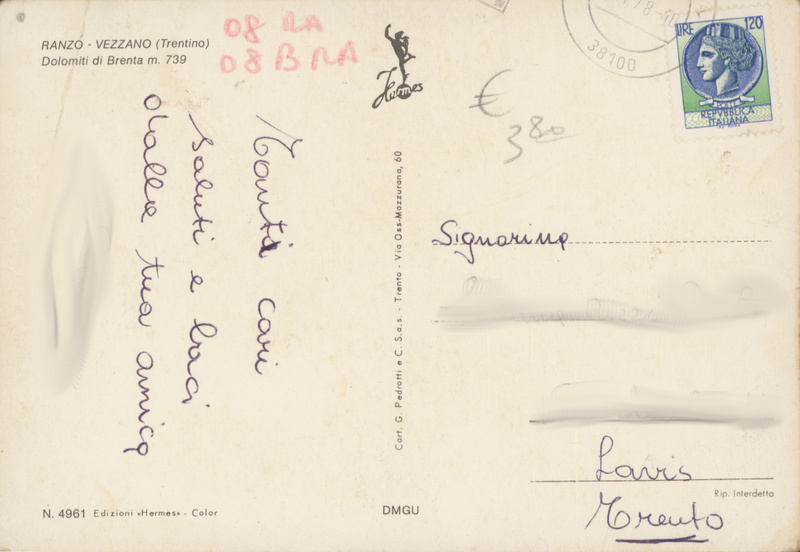 RANZO - VEZZANO (Trentino)
Dolomiti di Brenta m. 739
08 RA
08 B RA
Hermes
Tanti cari
saluti e baci
dalla tua amica
N. 4961 Edizioni «Hermes» - Color
Cart. G. Pedrotti e C. S.a.s. - Trento - Via Oss-Mazzurana, 60
DMGU
€
3,80
38100
LIRE 120
POSTE
REPVBBLICA
ITALIANA
Signorina
Lavis
Rip. Interdetta
Trento